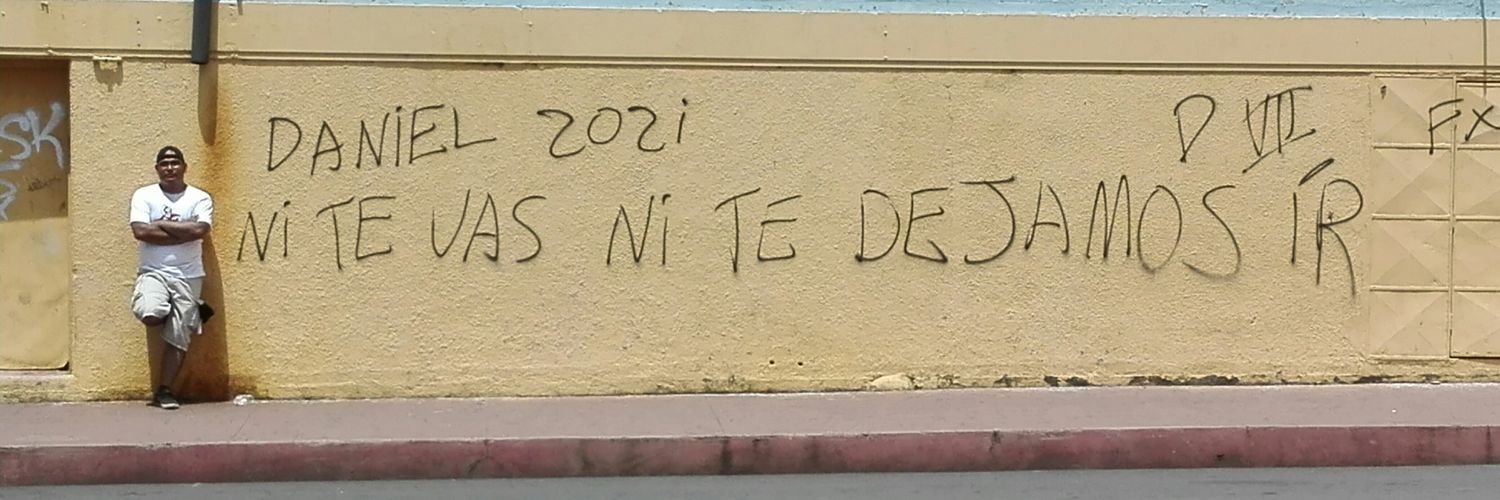 SK
DANiEL 2021
D VII
Ni TE VAS Ni TE DEJAMOS ÍR
FX